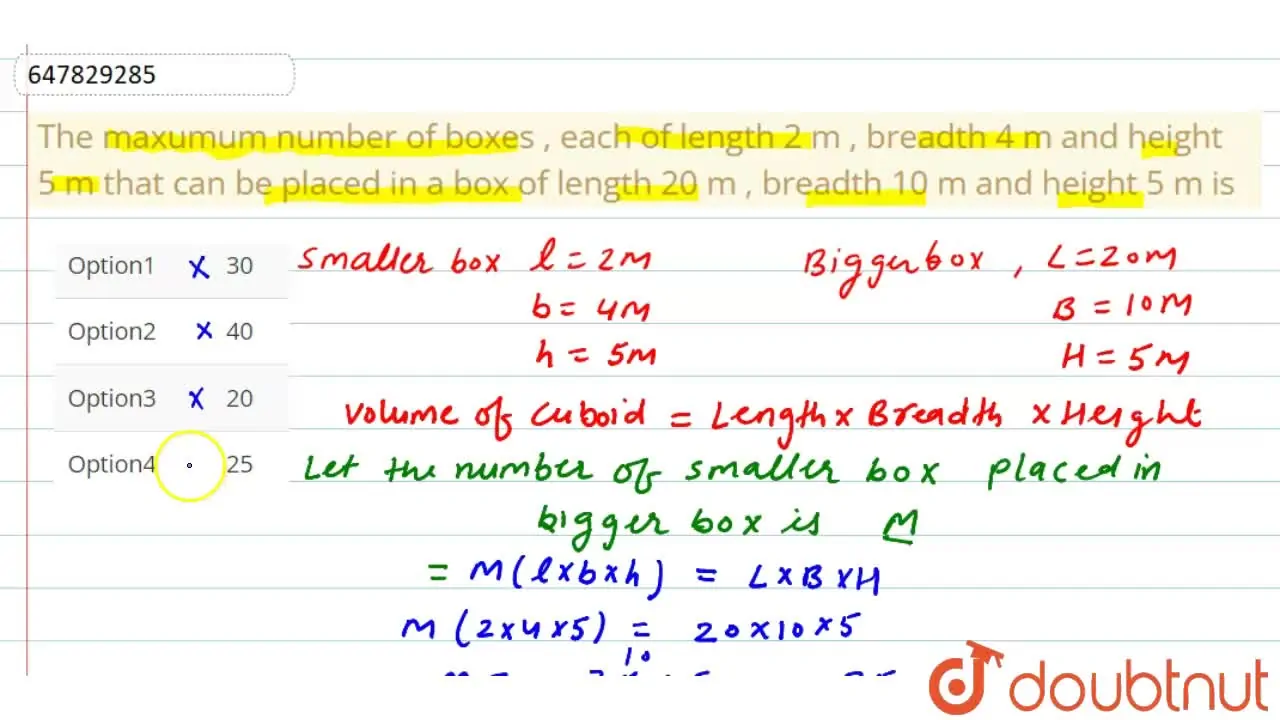 647829285
The maxumum number of boxes , each of length 2 m , breadth 4 m and height
5 m that can be placed in a box of length 20 m , breadth 10 m and height 5 m is
Option1 X 30
Option2 X 40
Option3 X 20
Option4 25
Smaller box l = 2M
b = 4M
h = 5M
Bigger box , L = 20M
B = 10M
H = 5M
Volume of Cuboid = Length x Breadth x Height
Let the number of smaller box placed in
bigger box is M
= M (l x b x h) = L x B x H
M (2 x 4 x 5) = 20 x 10 x 5
10
doubtnut